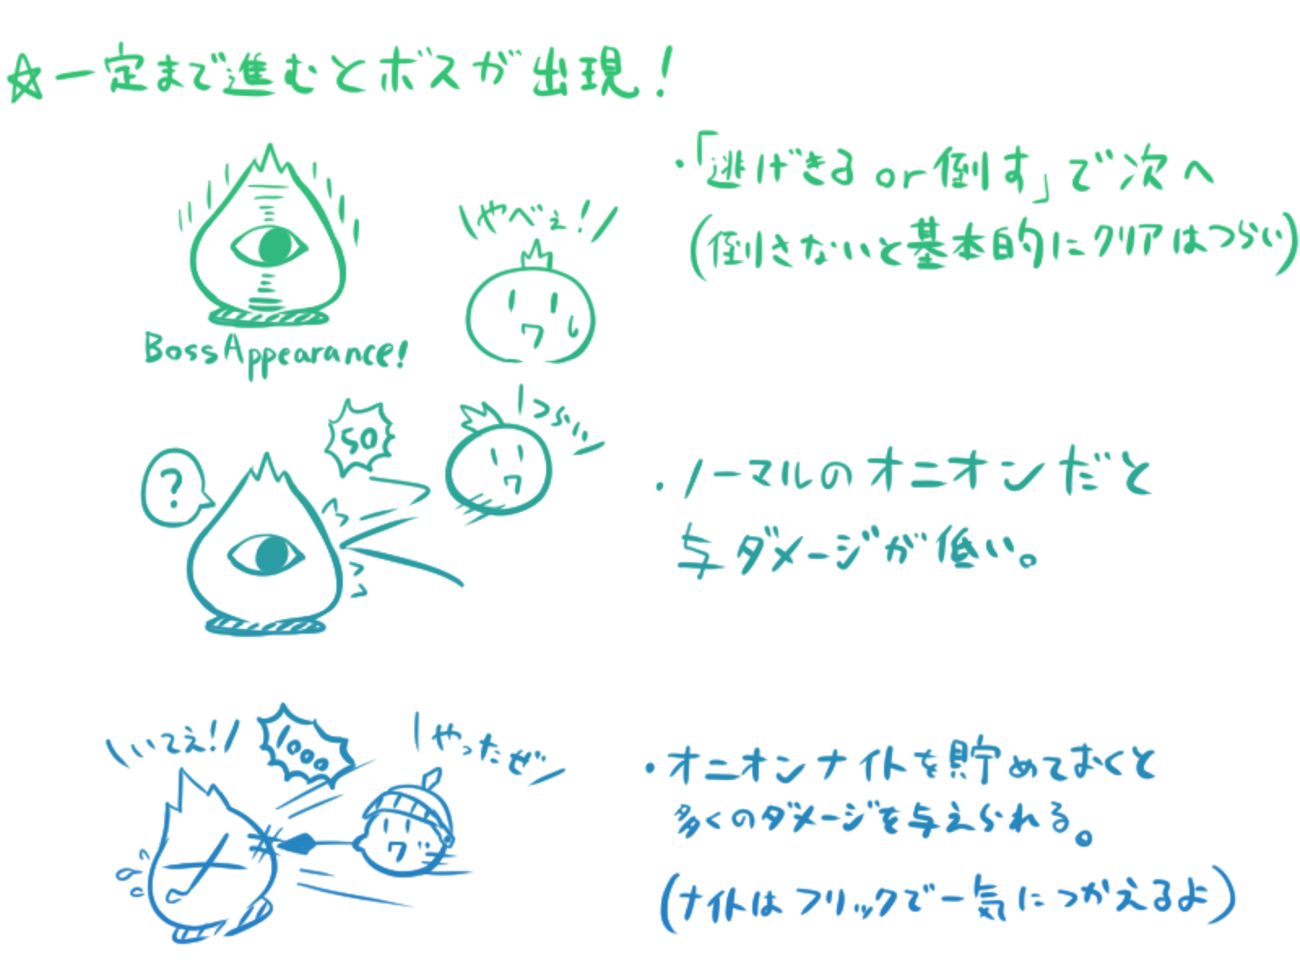 ☆一定まで進むとボスが出現!
・「逃げきるor倒す」で次へ
(倒さないと基本的にクリアはつらい)
\やべぇ!/
Boss Appearance!
50
\つらい/
?
・ノーマルのオニオンだと
与ダメージが低い。
\いてえ!/
1000
\やったぜ/
・オニオンナイトを貯めておくと
多くのダメージを与えられる。
(ナイトはフリックで一気につかえるよ)